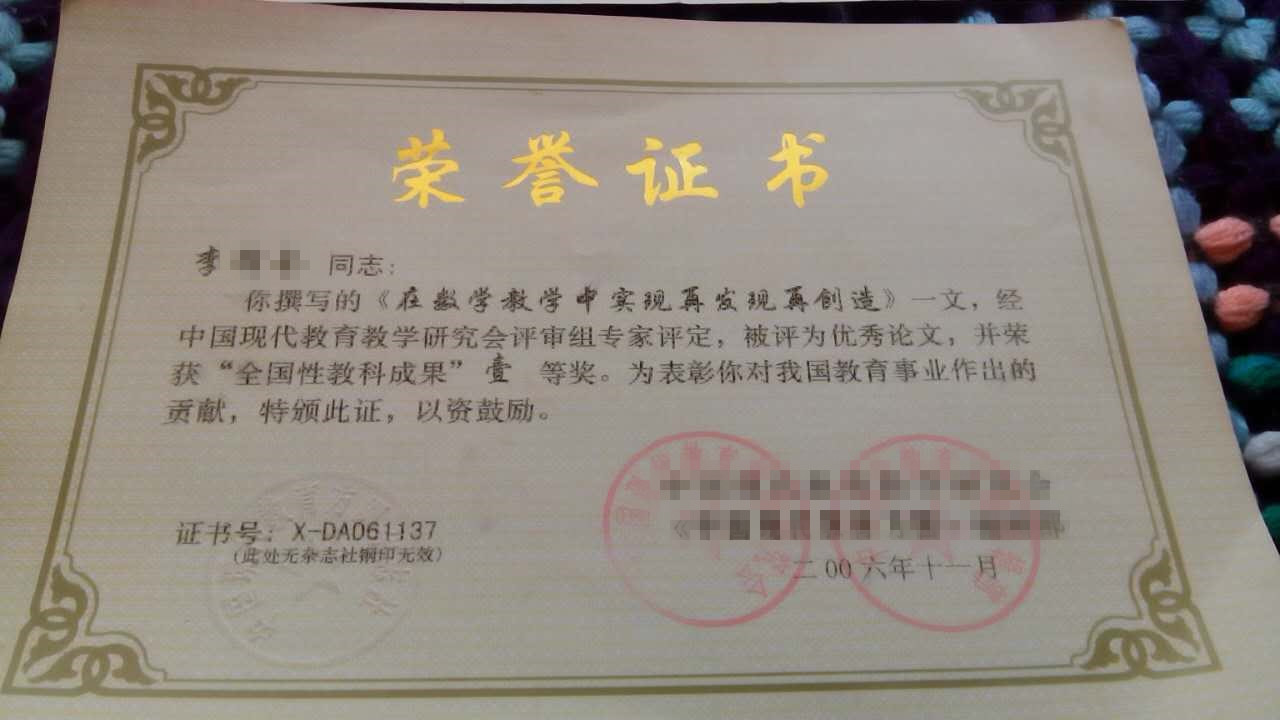 荣誉证书
李 同志：
你撰写的《在数学教学中实现再发现再创造》一文，经
中国现代教育教学研究会评审组专家评定，被评为优秀论文，并荣
获“全国性教科成果”壹 等奖。为表彰你对我国教育事业作出的
贡献，特颁此证，以资鼓励。
证书号：X-DA061137
（此处无杂志社钢印无效）
二00六年十一月